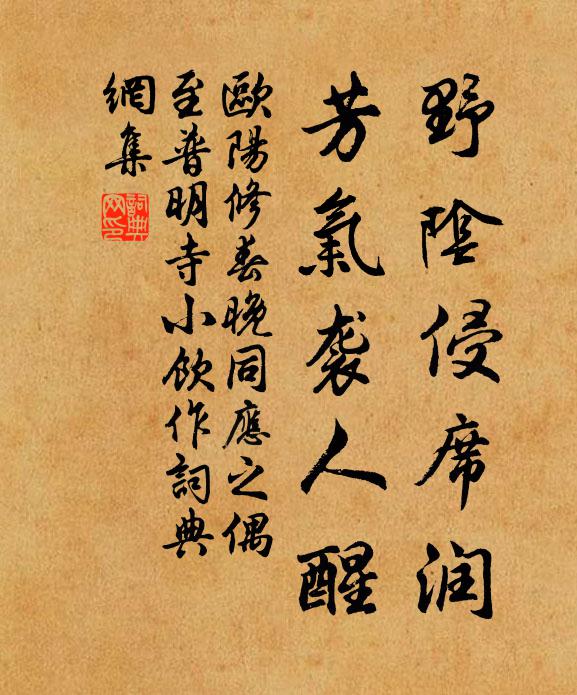 野陰侵席润
芳氣袭人醒
歐陽修春晚同應之偶
至普明寺小飲作詞典
網集
詞典網印